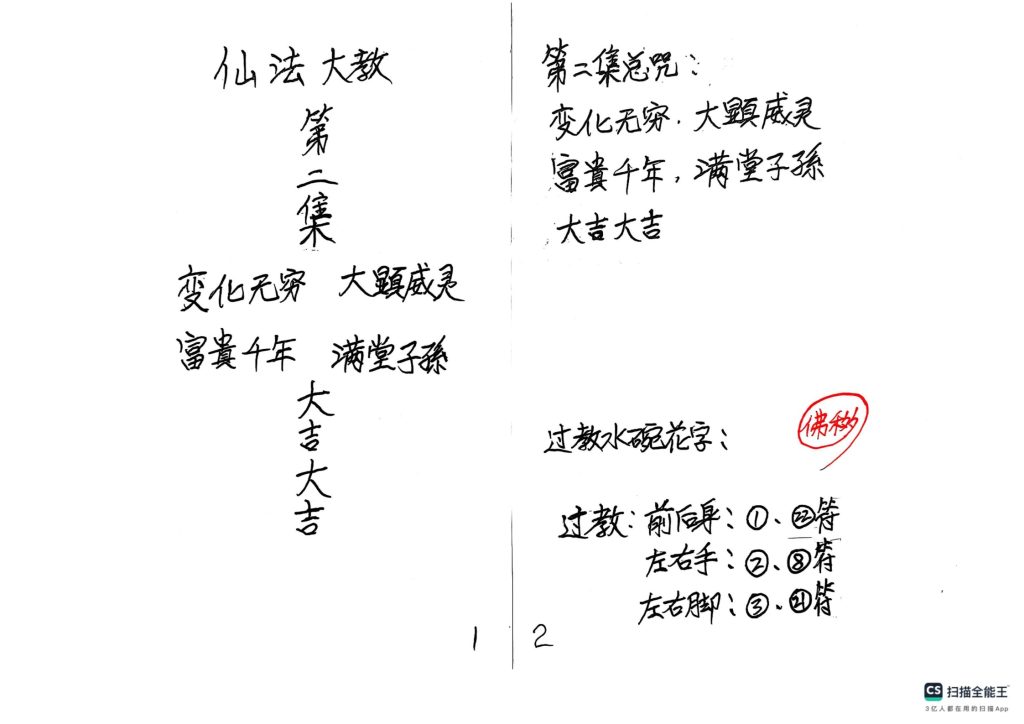 仙法大教
第
二
集
变化无穷 大顕威灵
富貴千年 满堂子孫
大
吉
大
吉
1
第二集总咒：
变化无穷，大顕威灵
富貴千年，满堂子孫
大吉大吉
过教水碗花字：
佛秘
过教：前后身：①、㉒符
左右手：②、⑧符
左右脚：③、㉑符
2
CS 扫描全能王
3亿人都在用的扫描App